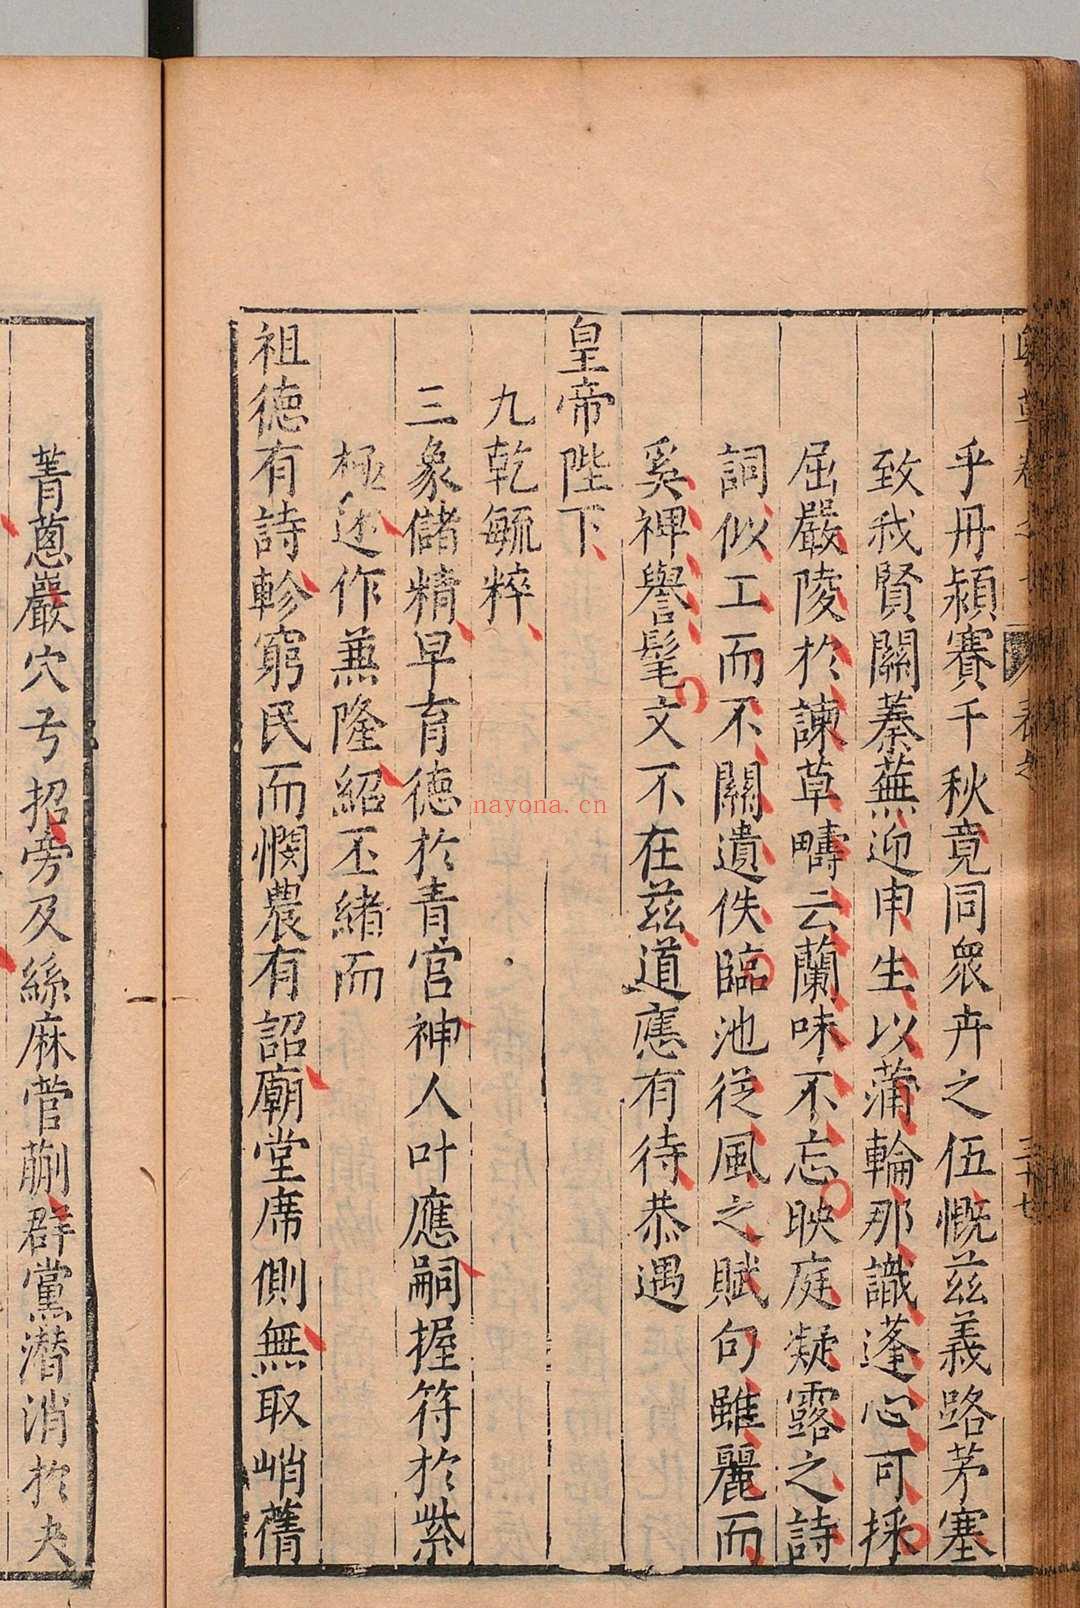 乎冊潁賽千秋竟同衆卉之伍慨茲義路茅塞
致我賢關蓁蕪迎申生以蒲輪那識蓬心可採
屈嚴陵於諫草疇云蘭味不忘映庭凝露之詩
詞似工而不關遺佚臨池從風之賦句雖麗而
奚裨譽髦文不在茲道應有待恭遇
皇帝陛下
九乾毓粹
三象儲精早育德於青宮神人叶應嗣握符於紫
極迹作蕪隆紹丕緒而
祖德有詩軫窮民而憫農有詔廟堂席側無取峭蒨
菁蔥巖穴弓招旁及絲麻菅蒯群黨潛消於夬
nayona.cn